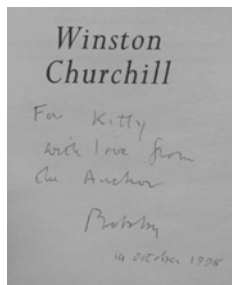 Winston
Churchill
For Kitty
with love from
the Author
Bobsby
14 October 1998